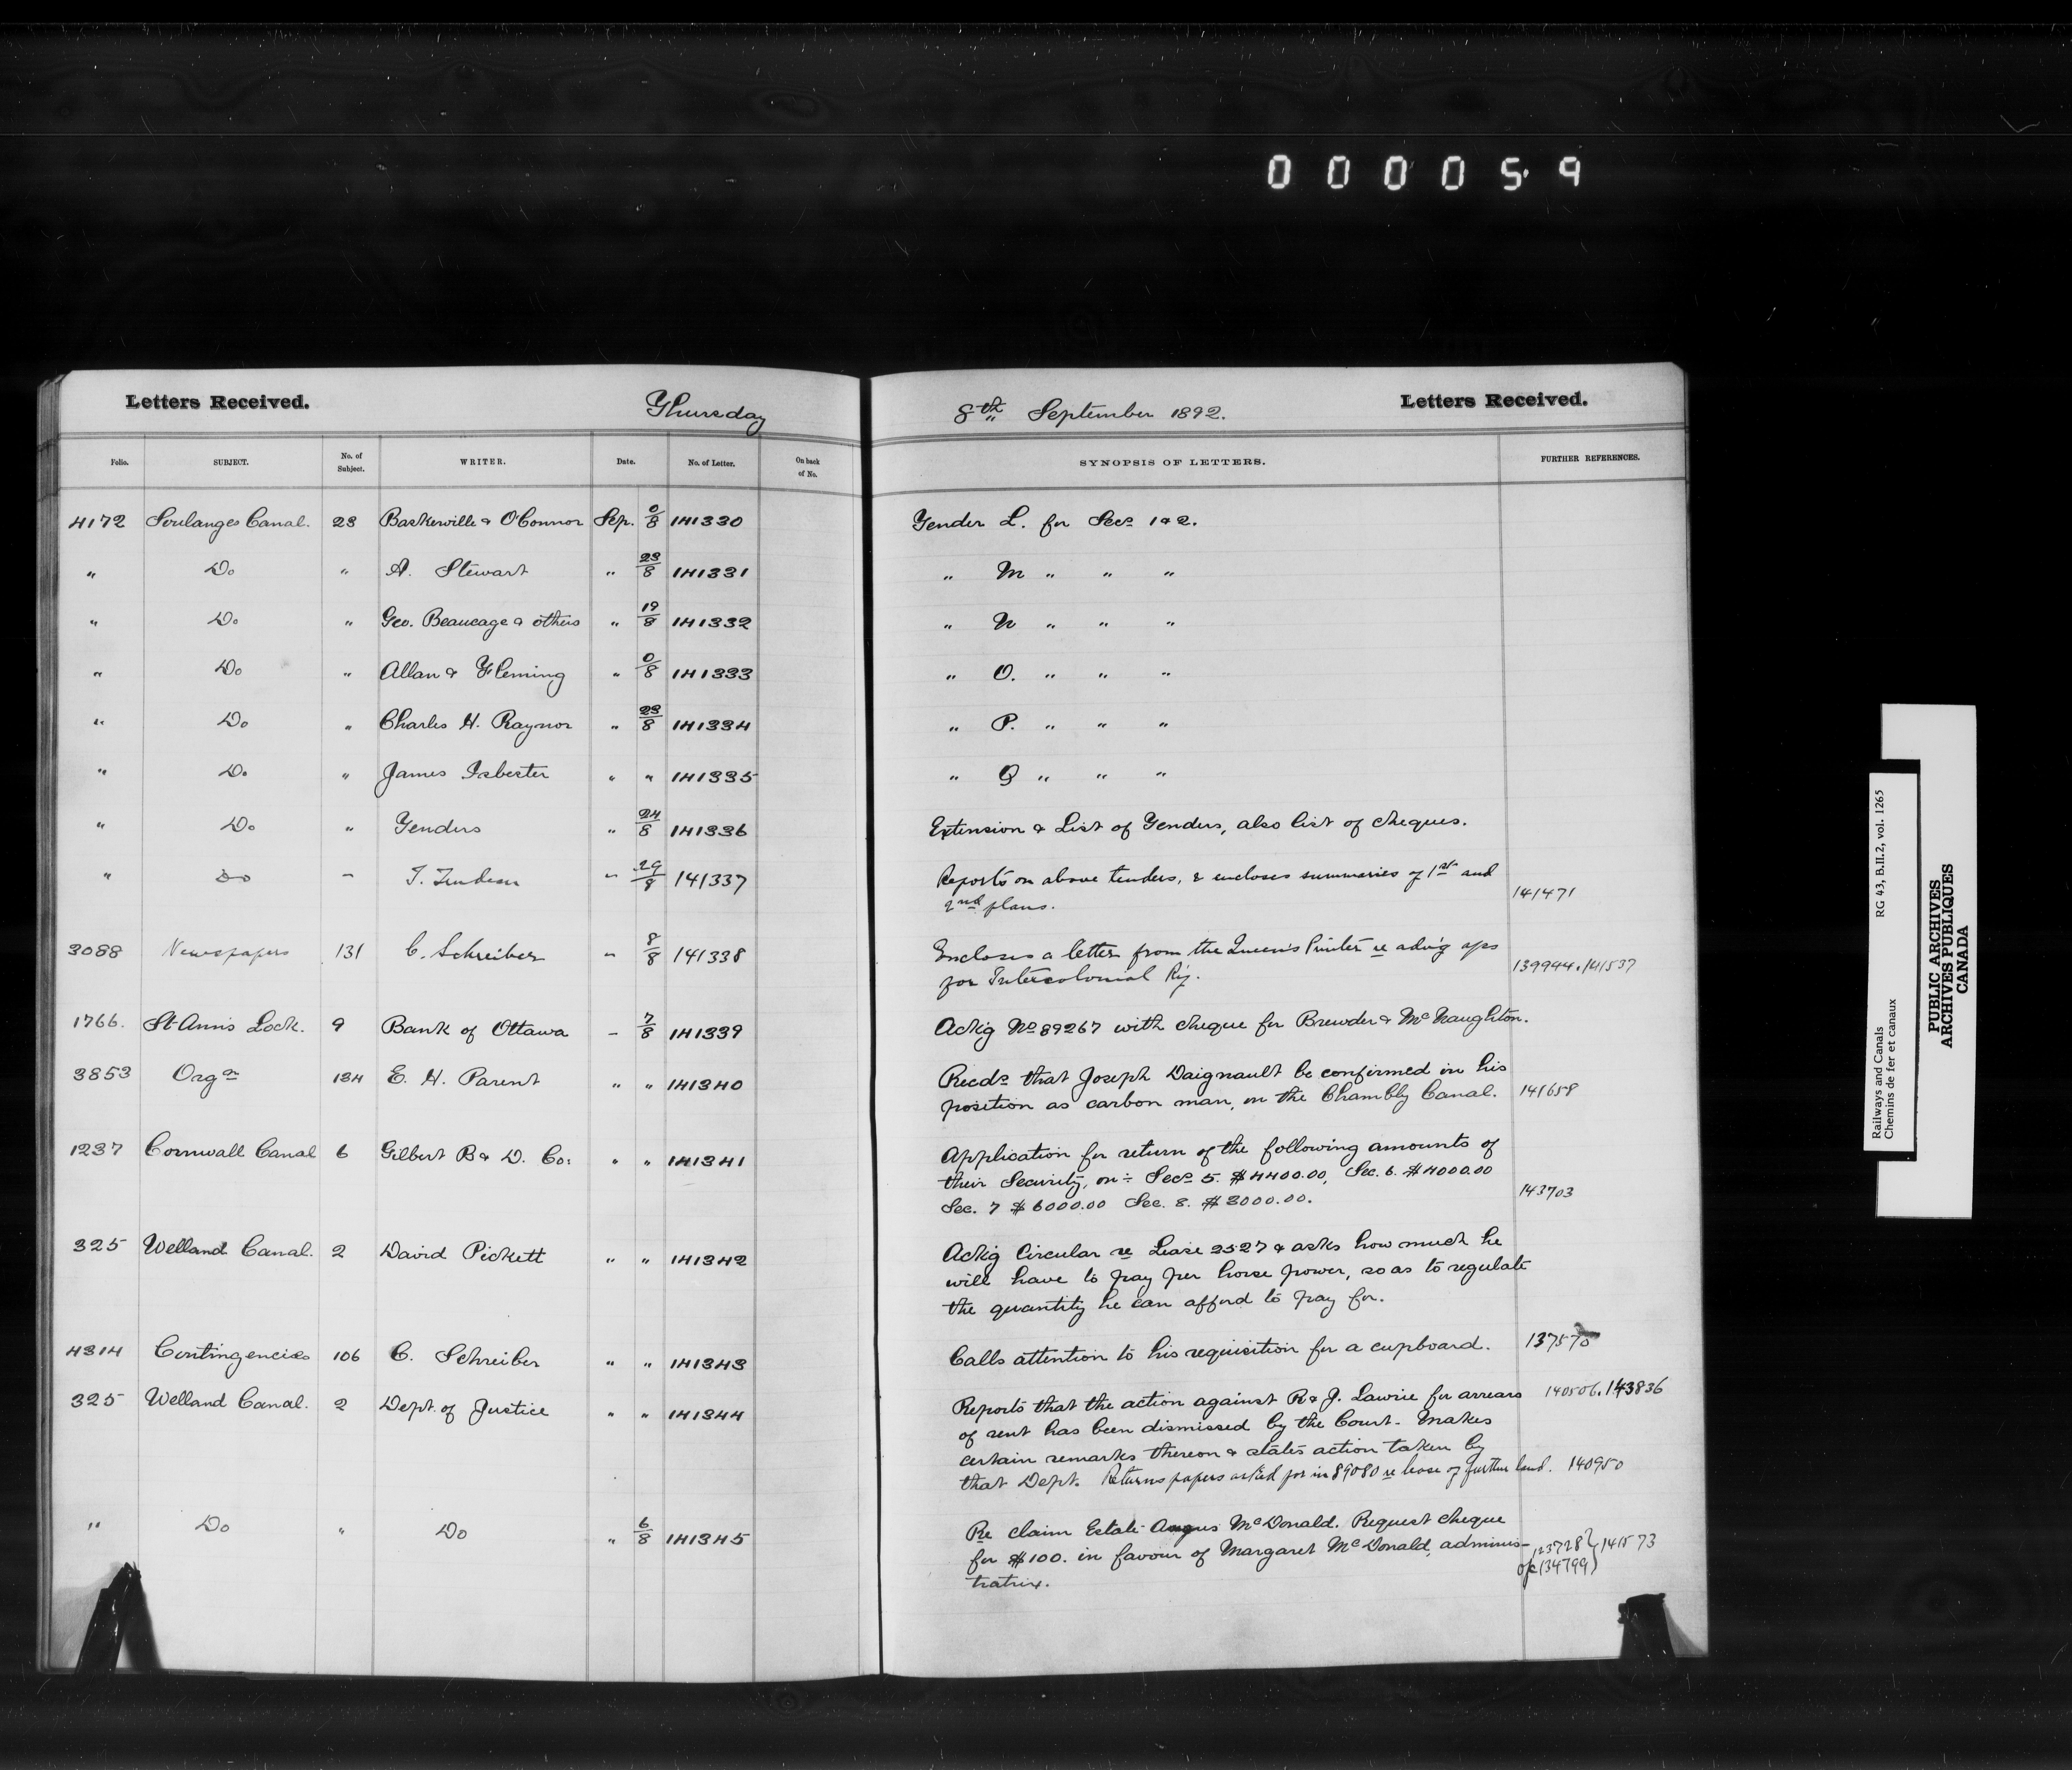 0 0 0 0 5 9
Letters Received. Thursday 8th September 1892. Letters Received.
Folio. SUBJECT. No. of Subject. WRITER. Date. No. of Letter. On back of No. SYNOPSIS OF LETTERS. FURTHER REFERENCES.
4172 Soulanges Canal. 23 Baskerville & O'Connor Sep. 0/8 141330 Tender L. for Secs 1 & 2.
" Do " A. Stewart " 23/8 141331 " M " " "
" Do " Geo. Beaucage & others " 19/8 141332 " N " " "
" Do " Allan & Fleming " 0/8 141333 " O. " " "
" Do " Charles H. Raynor " 23/8 141334 " P. " " "
" Do " James Isbester " " 141335 " Q " " "
" Do " Tenders " 24/8 141336 Extension & List of Tenders, also list of cheques.
" Do " T. Trudeau " 29/8 141337 Reports on above tenders, & encloses summaries of 1st and
2nd plans. 141471
3088 Newspapers 131 C. Schreiber " 8/8 141338 Encloses a letter from the Queen's Printer re adv'g a/cs
for Intercolonial Ry. 139944. 141537
1766. St Ann's Lock. 9 Bank of Ottawa " 7/8 141339 Ackg No 89267 with cheque for Brewder & McNaughton.
3853 Orgn 134 E. H. Parent " " 141340 Recds that Joseph Daignault be confirmed in his
position as carbon man, on the Chambly Canal. 141658
1237 Cornwall Canal 6 Gilbert B & D. Co: " " 141341 Application for return of the following amounts of
their Security, on ÷ Secs 5. $4400.00, Sec. 6. $4000.00
Sec. 7 $6000.00 Sec. 8. $3000.00. 143703
325 Welland Canal. 2 David Pickett " " 141342 Ackg Circular re Lease 2527 & asks how much he
will have to pay per horse power, so as to regulate
the quantity he can afford to pay for.
4314 Contingencies 106 C. Schreiber " " 141343 Calls attention to his requisition for a cupboard. 137570
325 Welland Canal. 2 Dept. of Justice " " 141344 Reports that the action against R & J. Lawrie for arrears 140506. 143836
of rent has been dismissed by the Court. Makes
certain remarks thereon & states action taken by
that Dept. Returns papers asked for in 89080 re lease of further land. 140950
" Do " Do " 6/8 141345 Re claim Estate Angus McDonald. Request cheque
for $100. in favour of Margaret McDonald, adminis- 123728 } 141573
tratrix. 134799
Railways and Canals RG 43, B.II.2, vol. 1265
Chemins de fer et canaux
PUBLIC ARCHIVES
ARCHIVES PUBLIQUES
CANADA